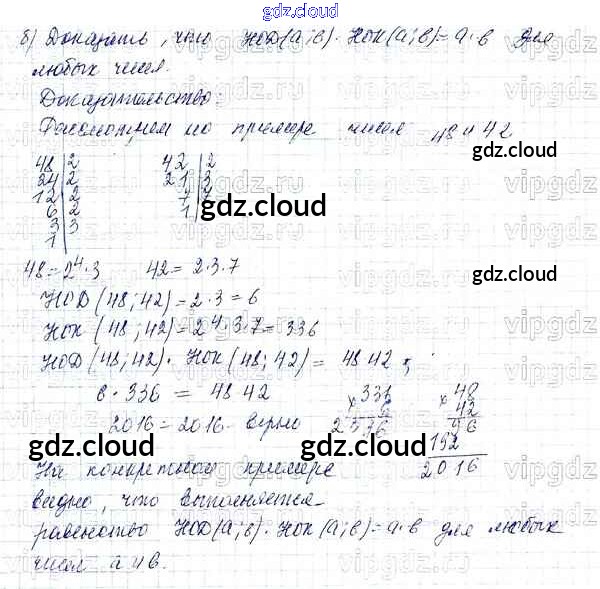 gdz.cloud
б) Доказать, что НОД(а;в)·НОК(а;в)=а·в для
любых чисел.
Доказательство:
Рассмотрим на примере чисел 48 и 42
48|2 42|2
24|2 21|3
12|2 7|7
6|2 1|
3|3
1|
gdz.cloud
gdz.cloud
48=2⁴·3 42=2·3·7
gdz.cloud
НОД(48;42)=2·3=6
НОК(48;42)=2⁴·3·7=336
НОД(48;42)·НОК(48;42)=48·42;
6·336=48·42
2016=2016 - верно
×336 ×48
6 42
96
192
2016
gdz.cloud
gdz.cloud
На конкретном примере
видно, что выполняется
равенство НОД(а;в)·НОК(а;в)=а·в для любых
чисел а и в.
vipgdz.ru